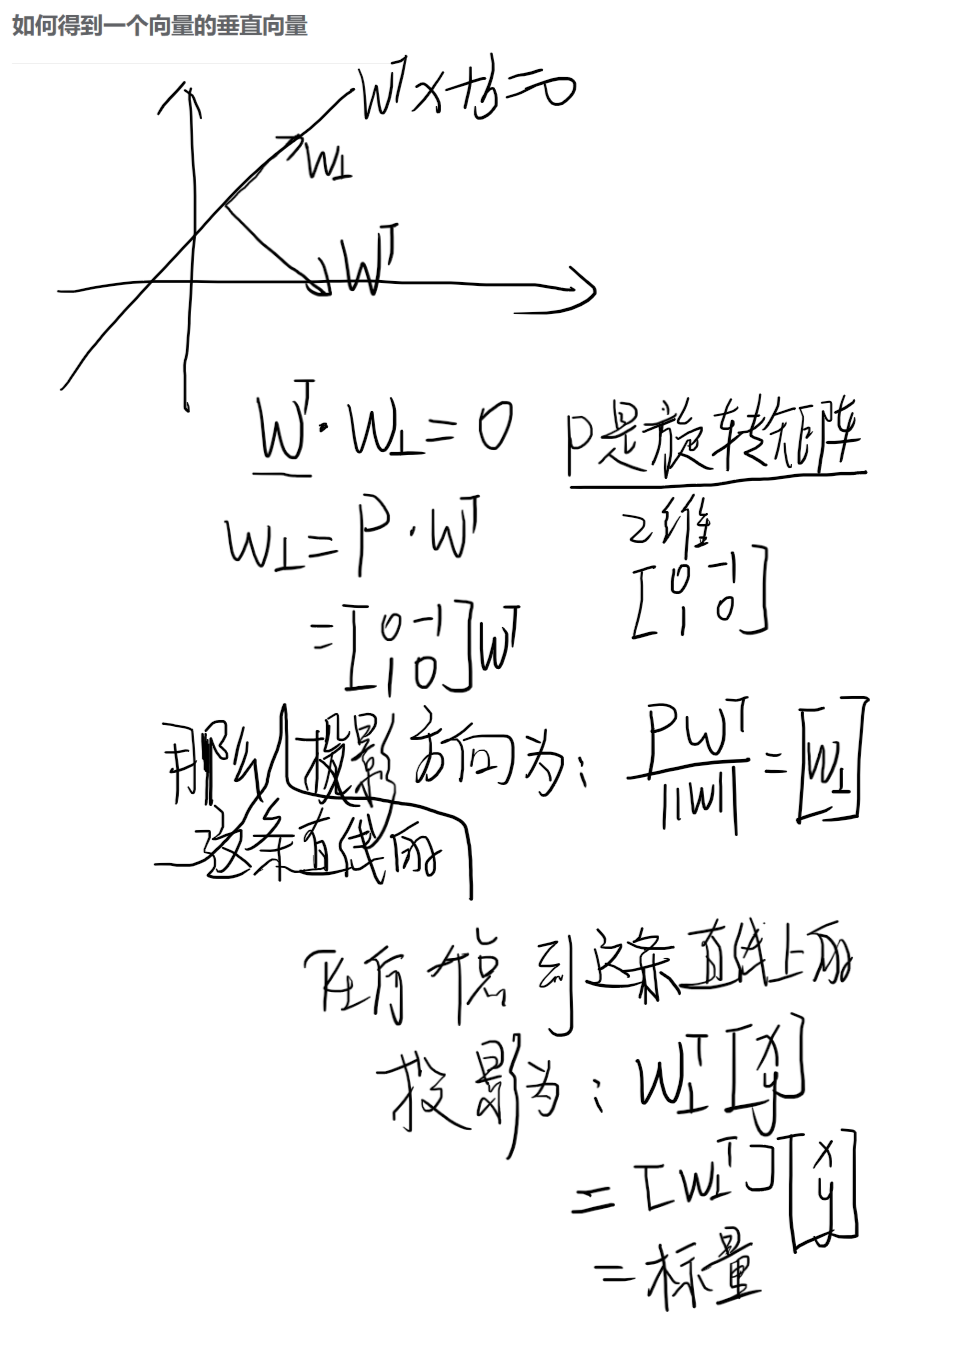 如何得到一个向量的垂直向量
Wᵀx+b=0
W⊥
Wᵀ
Wᵀ·W⊥=0
P是旋转矩阵
2维
[0 -1
1 0]
W⊥=P·Wᵀ
=[0 -1
1 0]Wᵀ
那么投影方向为：PWᵀ/||W||=[W⊥]
这条直线的
任何个点到这条直线上的
投影为：W⊥ᵀ[x
y]
=[W⊥ᵀ][x
y]
=标量